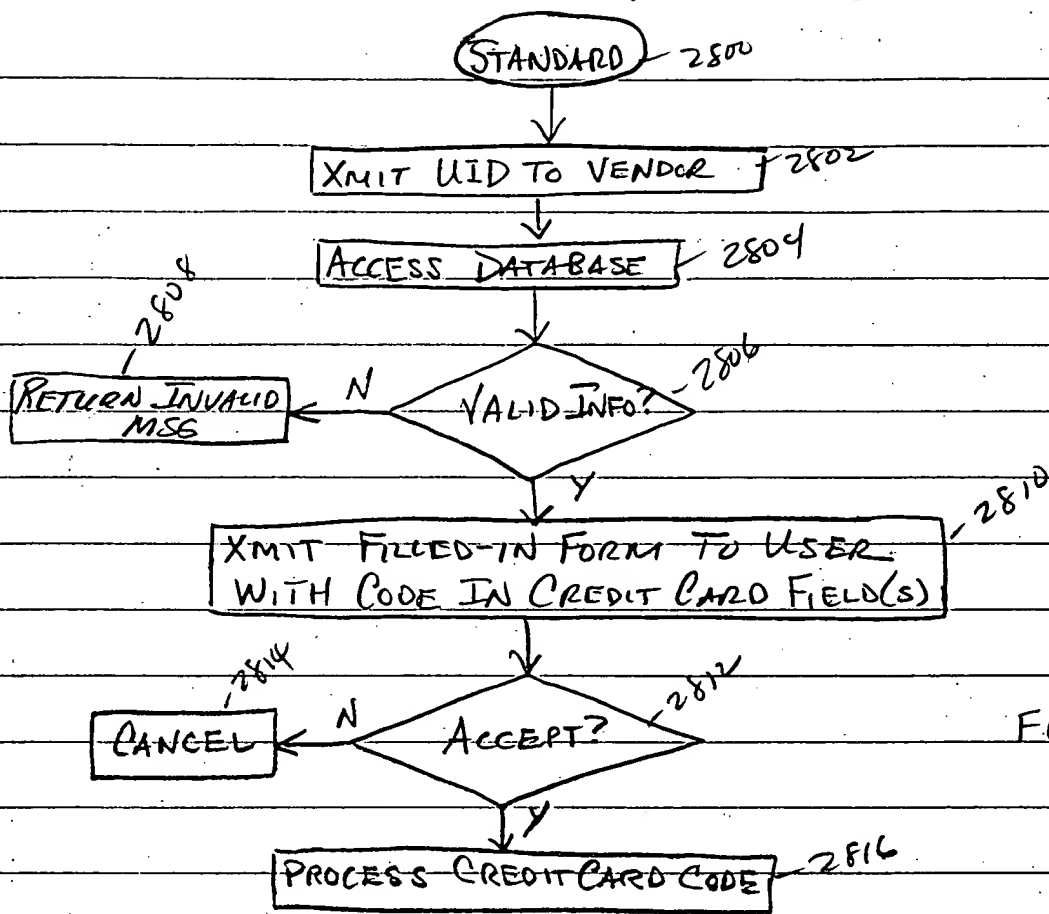 STANDARD 2800
XMIT UID TO VENDOR 2802
ACCESS DATABASE 2804
2808
2806
RETURN INVALID
MSG
N
VALID INFO?
Y
2810
XMIT FILLED-IN FORM TO USER
WITH CODE IN CREDIT CARD FIELD(S)
2814
2812
CANCEL
N
ACCEPT?
Y
PROCESS CREDIT CARD CODE 2816